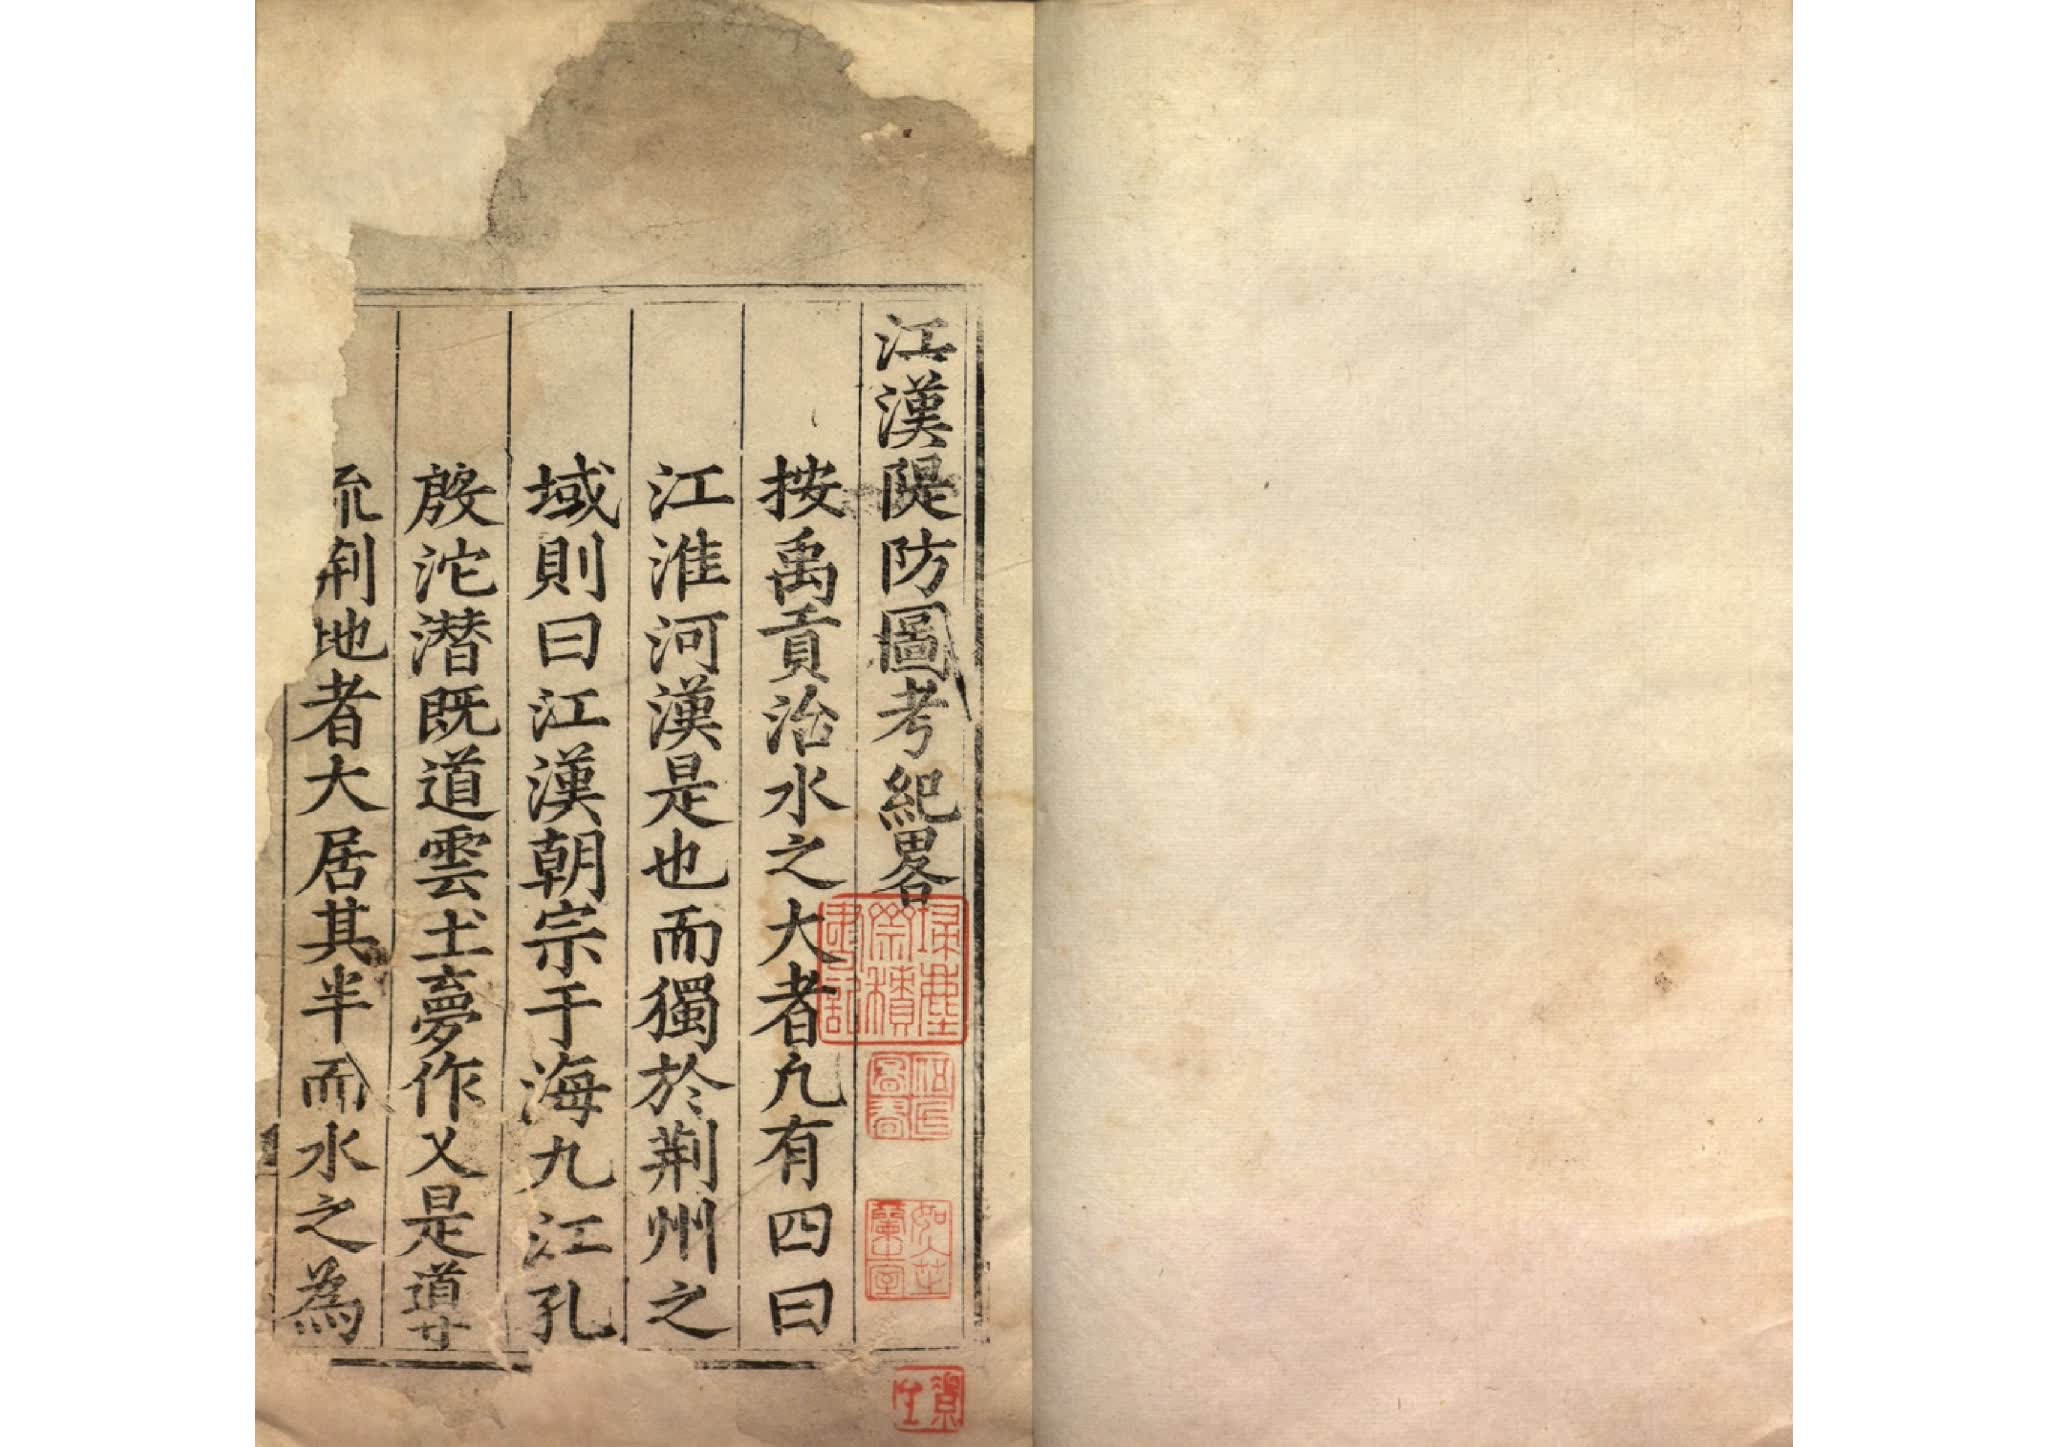 江漢隄防圖考紀畧
按禹貢治水之大者凢有四曰
江淮河漢是也而獨於荆州之
域則曰江漢朝宗于海九江孔
殷沱潜既道雲土夢作乂是導
流荆地者大居其半而水之為
掃塵齋積書記